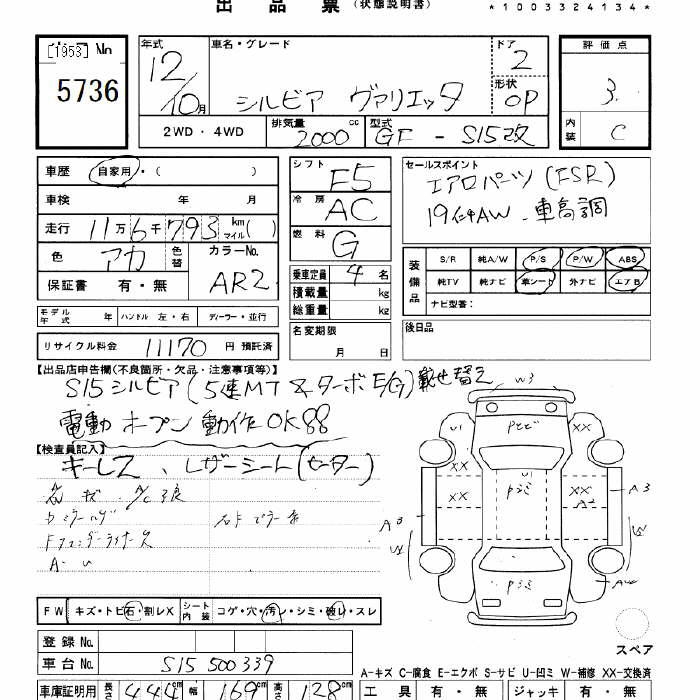 出品票 (状態説明書)
*1003324134*
[1953] No 5736
年式 12/10月
車名・グレード シルビア ヴァリエッタ
ドア 2
形状 OP
2WD・4WD 排気量 2000 cc 型式 GF-S15改
評価点 3.
内装 C
車歴 自家用・( )
車検 年 月
走行 11万6千793 km マイル( )
色 アカ 色替 カラーNo. AR2
保証書 有・無
モデル年式 年 ハンドル 左・右 ディーラー・並行
リサイクル料金 11170 円 預託済
シフト F5
冷房 AC
燃料 G
乗車定員 4 名
積載量 kg
総重量 kg
名変期限 月 日
セールスポイント
エアロパーツ(FSR)
19インチAW . 車高調
装備品 S/R 純A/W P/S P/W ABS
純TV 純ナビ 革シート 外ナビ エアB
ナビ型番:
後日品
【出品店申告欄(不良箇所・欠品・注意事項等)】
S15シルビア(5速MT&ターボE/G)載せ替え
電動オープン動作OK88
【検査員記入】
キーレス、レザーシート(ヒーター)
A/C
W3
U1 XX
XX XX
A3 A2
A3
FW キズ・トビ石・割レX シート内装 コゲ・穴・汚レ・シミ・破レ・スレ
スペア
登録No.
車台No. S15 500339
A-キズ C-腐食 E-エクボ S-サビ U-凹ミ W-補修 XX-交換済
車庫証明用 長さ 444 cm 幅 169 cm 高さ 128 cm
工具 有・無 ジャッキ 有・無